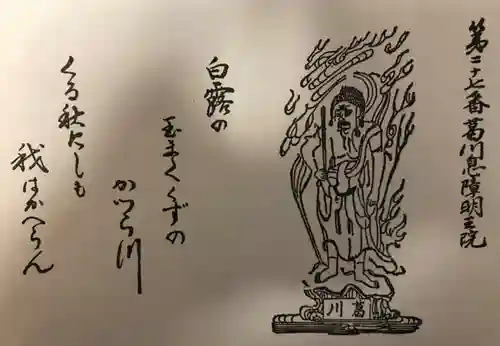 第二十七番葛川息障明王院
白露の
玉まくくずの
かつら川
くる秋にしも
我はかへらん
葛川